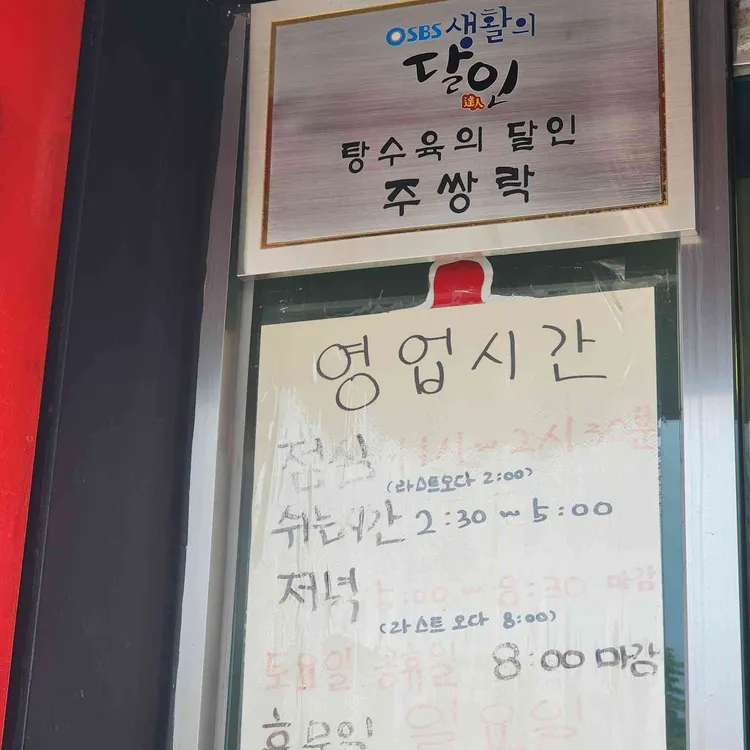 SBS 생활의
달인
達人
탕수육의 달인
주쌍락
영업시간
점심 11시~2시30분
(라스트오다 2:00)
쉬는시간 2:30~5:00
저녁 5:00~8:30 마감
(라스트오다 8:00)
토요일 공휴일 8:00 마감
휴무일 일요일